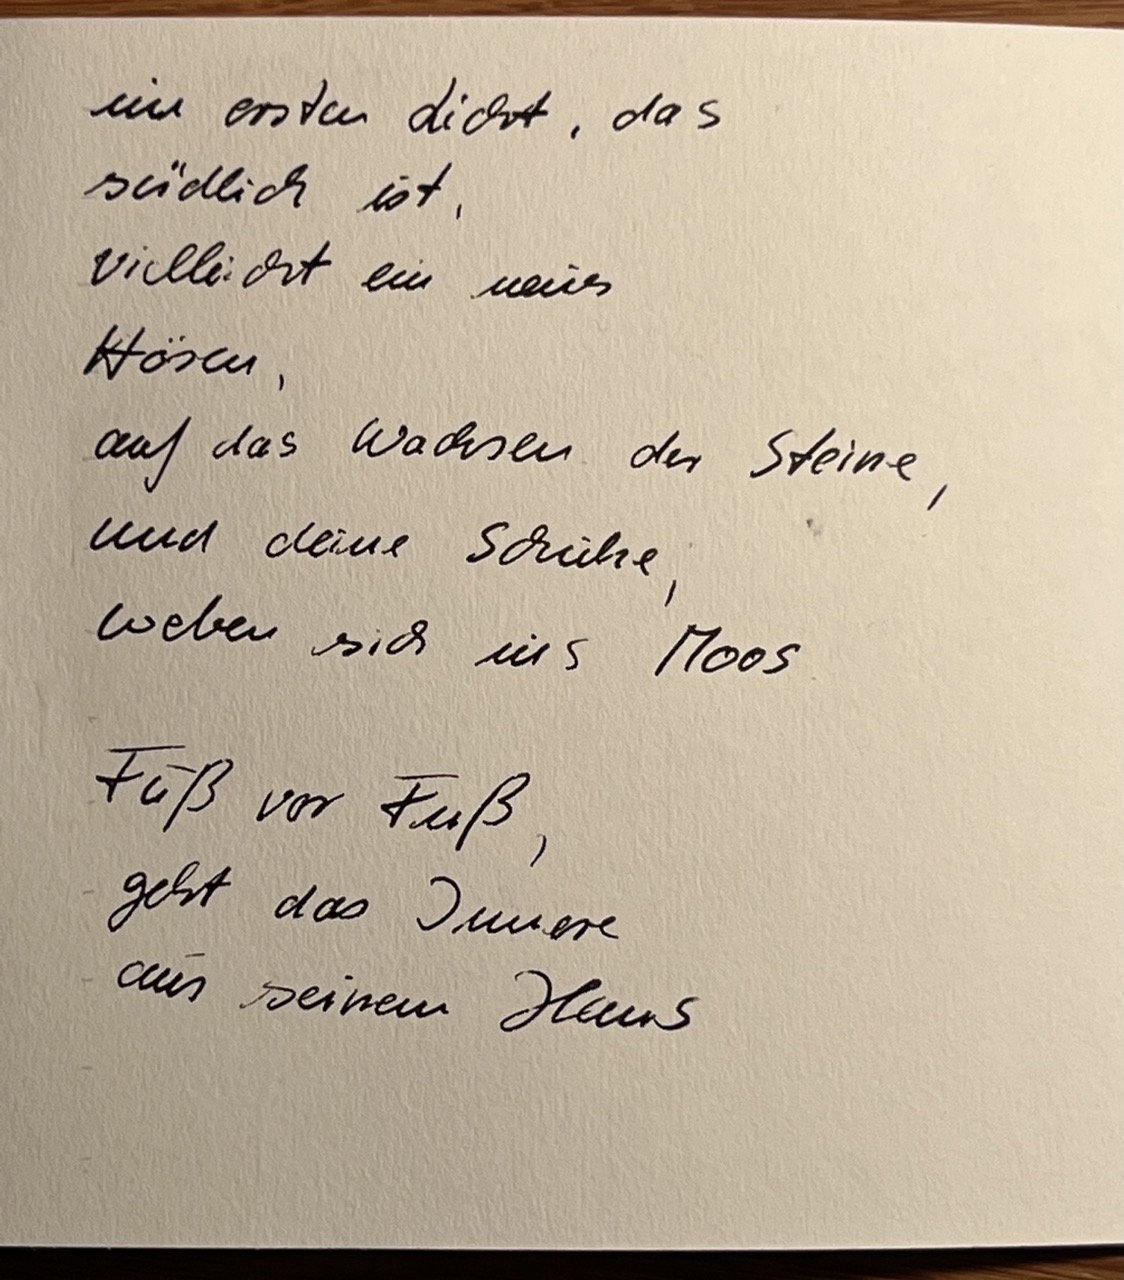 im ersten Licht, das
südlich ist,
vielleicht ein neues
Hören,
auf das Wachsen der Steine,
und deine Schuhe,
weben sich ins Moos
Fuß vor Fuß,
geht das Innere
aus seinem Haus